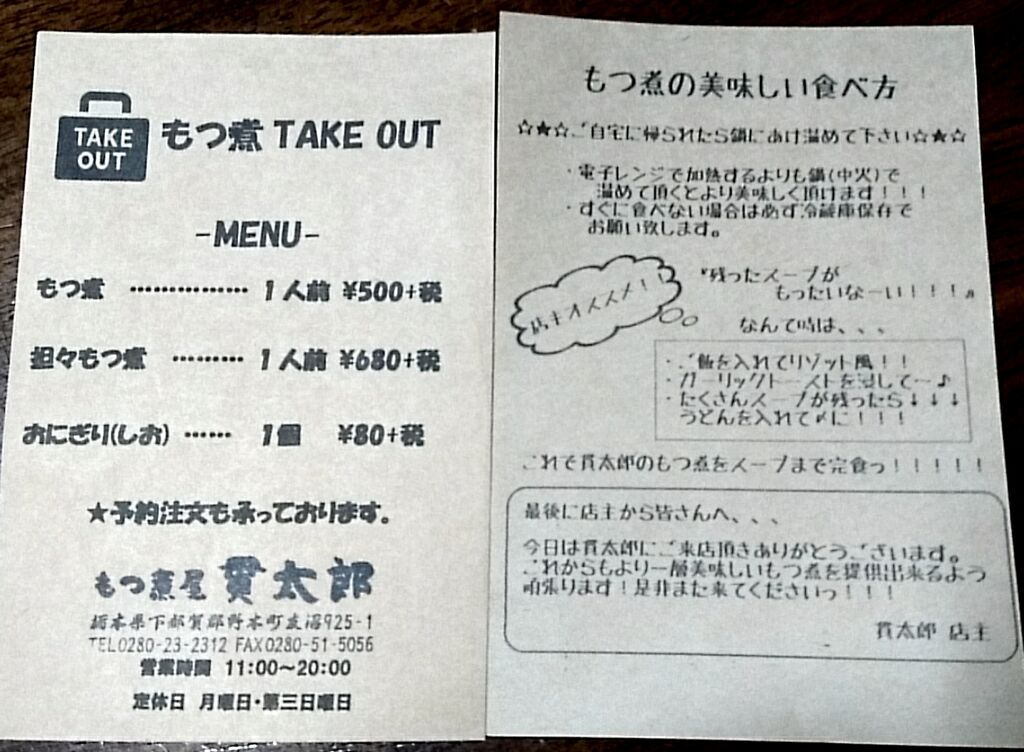 TAKE
OUT
もつ煮 TAKE OUT
-MENU-
もつ煮 ‥‥‥‥‥‥‥ 1人前 ¥500+税
担々もつ煮 ‥‥‥‥ 1人前 ¥680+税
おにぎり(しお) ‥‥‥ 1個 ¥80+税
★予約注文も承っております。
もつ煮屋 貫太郎
栃木県下都賀郡野木町友沼925-1
TEL0280-23-2312 FAX0280-51-5056
営業時間 11:00〜20:00
定休日 月曜日・第三日曜日
もつ煮の美味しい食べ方
☆★☆ご自宅に帰られたら鍋にあけ温めて下さい☆★☆
・電子レンジで加熱するよりも鍋(中火)で
温めて頂くとより美味しく頂けます!!!
・すぐに食べない場合は必ず冷蔵庫保存で
お願い致します。
店主オススメ!!
『残ったスープが
もったいなーい!!!』
なんて時は、、、
・ご飯を入れてリゾット風!!
・ガーリックトーストを浸して〜♪
・たくさんスープが残ったら↓↓↓
うどんを入れて〆に!!!
これで貫太郎のもつ煮をスープまで完食っ!!!!!
最後に店主から皆さんへ、、、
今日は貫太郎にご来店頂きありがとうございます。
これからもより一層美味しいもつ煮を提供出来るよう
頑張ります!是非また来てくださいっ!!!
貫太郎 店主